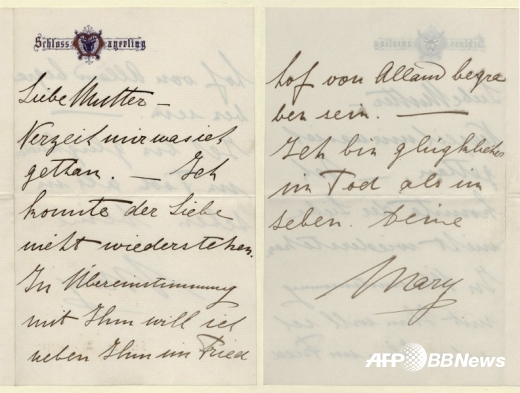 Schloss Mayerling
Liebe Mutter –
Verzeih mir was ich
gethan. – Ich
konnte der Liebe
nicht wiederstehen.
In Übereinstimmung
mit Ihm will ich
neben Ihm im Fried
hof von Alland begra
ben sein. —
Ich bin glücklicher
im Tod als im
Leben. Deine
Mary
AFP BBNews